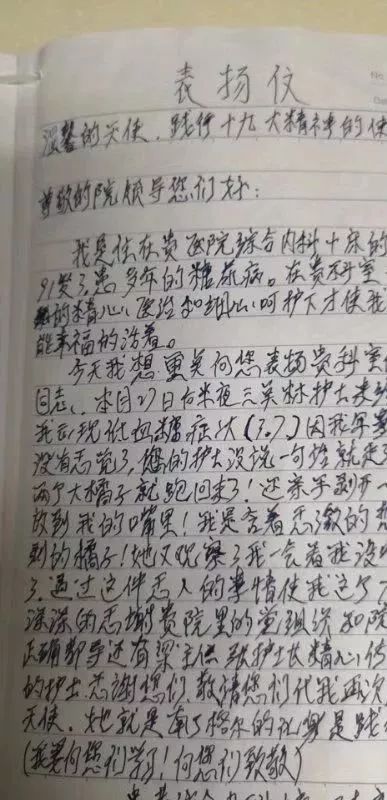 表扬仪
温馨的天使，践行十九大精神的使
尊敬的院领导您们好：
我是住在贵医院综合内科十床的
91岁了，患多年的糖尿病。在贵科室
的精心医治和细心呵护下才使我
能幸福的活着。
今天我想更笑向您表扬贵科室
同志、本月27日后半夜三点林护士来到
我出现低血糖症状（3.7）因我年
没有感觉了，您的护士没说一句话就走了
两个大橘子就跑回来了！还亲手剥开一
放到我的嘴里！我是含着感激的
剥的橘子！她又观察了我一会看我没
了。通过这件感人的事情使我这个
深深的感谢贵院里的党组织和院
正确领导还有梁主任 张护士长精心
的护士，感谢您们，敬请您们代我再次
天使，她就是南丁格尔的化身是践
（我要向您们学习！向您们致敬）